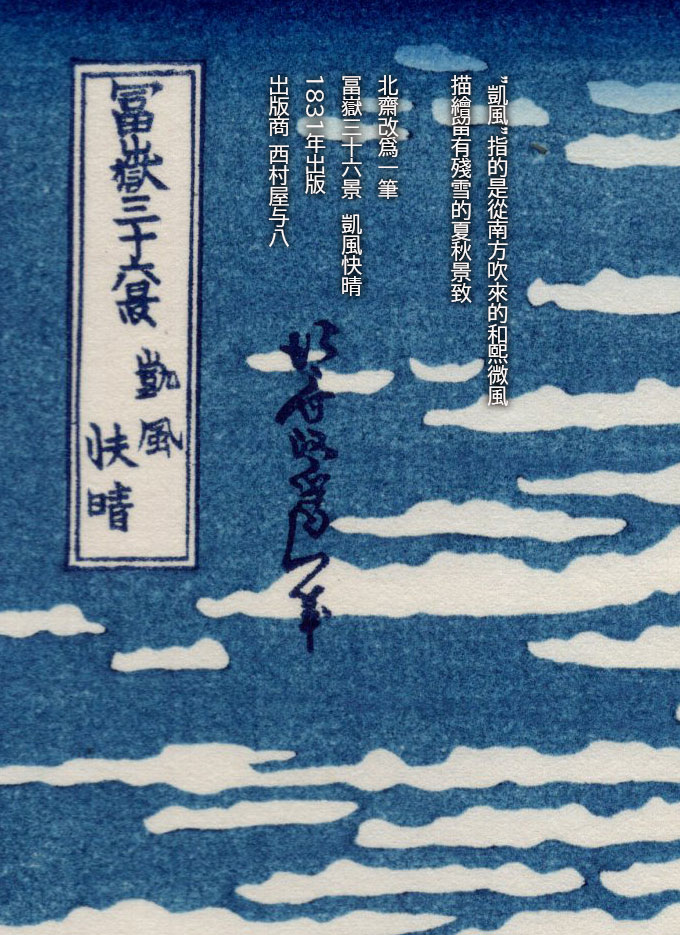 "凱風"指的是從南方吹來的和熙微風
描繪留有殘雪的夏秋景致
北齋改為一筆
冨嶽三十六景 凱風快晴
1831年出版
出版商 西村屋与八
北斎改為一筆
冨嶽三十六景 凱風
快晴